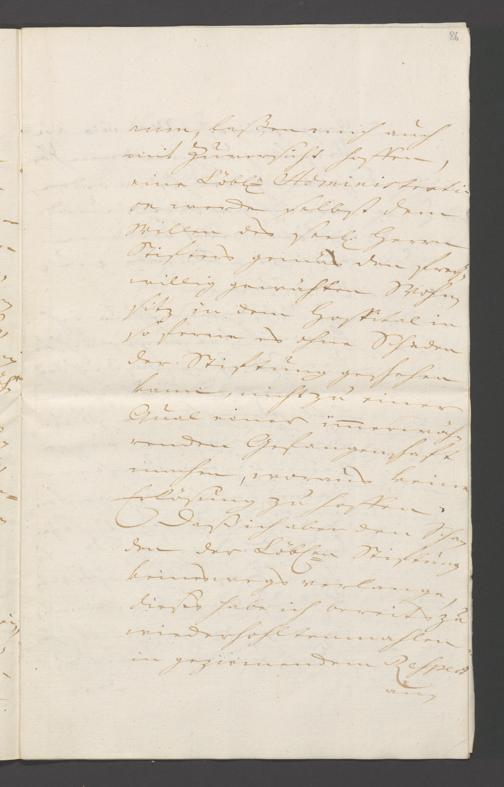 86
nun, laßen mich auch
mit Zuversicht hoffen,
eine Löbl. Administrati-
on werde selbst dem
Willen des seel. Herrn
Stifters gemäs den frey
willig gewählten Wohn
sitz in dem Hospital in
soferne es ohne Schaden
der Stifftung geschehen
kann, nicht zu einer
Qual einer immerwäh
renden Gefangenschaft
machen, woraus keine
Erlösung zu hoffen.
Daß ich aber den Scha
den der Löbln Stifftung
keineswegs verlange,
dieses habe ich bereits zu
wiederholtenmahlen
in geziemendem Respect